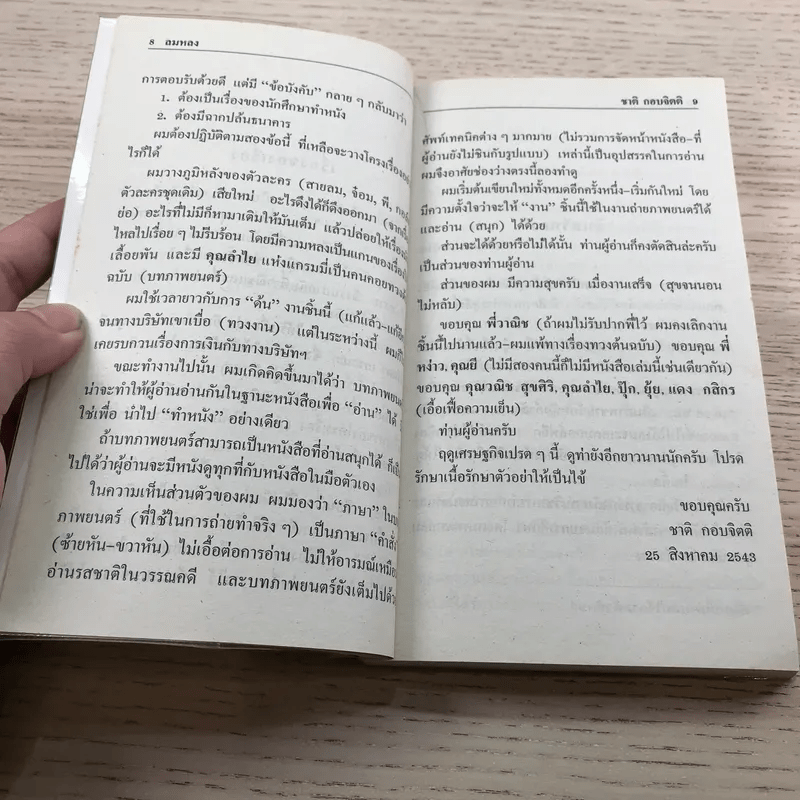 8 ลมหลง
การตอบรับด้วยดี แต่มี “ข้อบังคับ” กลาย ๆ กลับมาว่า
1. ต้องเป็นเรื่องของนักศึกษาทำหนัง
2. ต้องมีฉากปล้นธนาคาร
ผมต้องปฏิบัติตามสองข้อนี้ ที่เหลือจะวางโครงเรื่อง
ไรก็ได้
ผมวางภูมิหลังของตัวละคร (สายลม, จ๋อม, พี,
ตัวละครชุดเดิม) เสียใหม่ อะไรดึงได้ก็ดึงออกมา
ย่อ) อะไรที่ไม่มีก็หามาเติมให้มันเต็ม แล้วปล่อยให้เรื่อง
ไหลไปเรื่อย ๆ ไม่รีบร้อน โดยมีความหลงเป็นแกนของเรื่อง
เลื้อยพัน และมี คุณลำไย แห่งแกรมมี่เป็นคนคอยทวง
ฉบับ (บทภาพยนตร์)
ผมใช้เวลายาวกับการ “ด้น” งานชิ้นนี้ (แก้แล้ว-แก้
จนทางบริษัทเขาเบื่อ (ทวงงาน) แต่ในระหว่างนี้ ผม
เคยรบกวนเรื่องการเงินกับทางบริษัทฯ
ขณะทำงานไปนั้น ผมเกิดคิดขึ้นมาได้ว่า บทภาพยนตร์
น่าจะทำให้ผู้อ่านอ่านกันในฐานะหนังสือเพื่อ “อ่าน” ได้
ใช่เพื่อ นำไป “ทำหนัง” อย่างเดียว
ถ้าบทภาพยนตร์สามารถเป็นหนังสือที่อ่านสนุกได้
ไปได้ว่าผู้อ่านจะมีหนังดูทุกที่กับหนังสือในมือตัวเอง
ในความเห็นส่วนตัวของผม ผมมองว่า “ภาษา” ใน
ภาพยนตร์ (ที่ใช้ในการถ่ายทำจริง ๆ) เป็นภาษา “คำสั่ง
(ซ้ายหัน-ขวาหัน) ไม่เอื้อต่อการอ่าน ไม่ให้อารมณ์เหมือน
อ่านรสชาติในวรรณคดี และบทภาพยนตร์ยังเต็มไปด้วย
ชาติ กอบจิตติ 9
ศัพท์เทคนิคต่าง ๆ มากมาย (ไม่รวมการจัดหน้าหนังสือ-ที่
ผู้อ่านยังไม่ชินกับรูปแบบ) เหล่านี้เป็นอุปสรรคในการอ่าน
ผมจึงอาศัยช่องว่างตรงนี้ลองทำดู
ผมเริ่มต้นเขียนใหม่ทั้งหมดอีกครั้งหนึ่ง-เริ่มกันใหม่ โดย
มีความตั้งใจว่าจะให้ “งาน” ชิ้นนี้ใช้ในงานถ่ายภาพยนตร์ได้
และอ่าน (สนุก) ได้ด้วย
ส่วนจะได้ด้วยหรือไม่ได้นั้น ท่านผู้อ่านก็คงตัดสินล่ะครับ
เป็นส่วนของท่านผู้อ่าน
ส่วนของผม มีความสุขครับ เมื่องานเสร็จ (สุขจนนอน
ไม่หลับ)
ขอบคุณ พี่วาณิช (ถ้าผมไม่รับปากพี่ไว้ ผมคงเลิกงาน
ชิ้นนี้ไปนานแล้ว-ผมแพ้ทางเรื่องทวงต้นฉบับ) ขอบคุณ พี่
หง่าว, คุณยี (ไม่มีสองคนนี้ก็ไม่มีหนังสือเล่มนี้เช่นเดียวกัน)
ขอบคุณ คุณวณิช สุขศิริ, คุณลำไย, ปุ๊ก, อุ้ย, แดง กสิกร
(เอื้อเฟื้อความเย็น)
ท่านผู้อ่านครับ
ฤดูเศรษฐกิจเปรต ๆ นี้ ดูท่ายังอีกยาวนานนักครับ โปรด
รักษาเนื้อรักษาตัวอย่าให้เป็นไข้
ขอบคุณครับ
ชาติ กอบจิตติ
25 สิงหาคม 2543